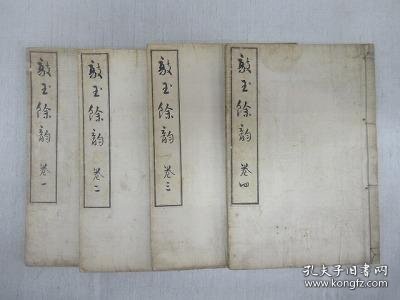 敲玉餘韵 卷一
敲玉餘韵 卷二
敲玉餘韵 卷三
敲玉餘韵 卷四
孔夫子旧书网
kongfz.com